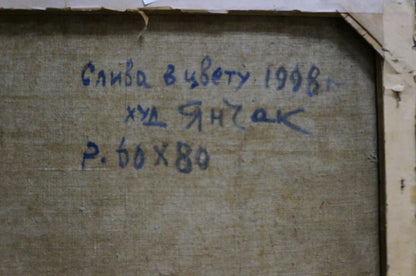 Слива в цвету 1998г
худ Янчак
р. 60х80